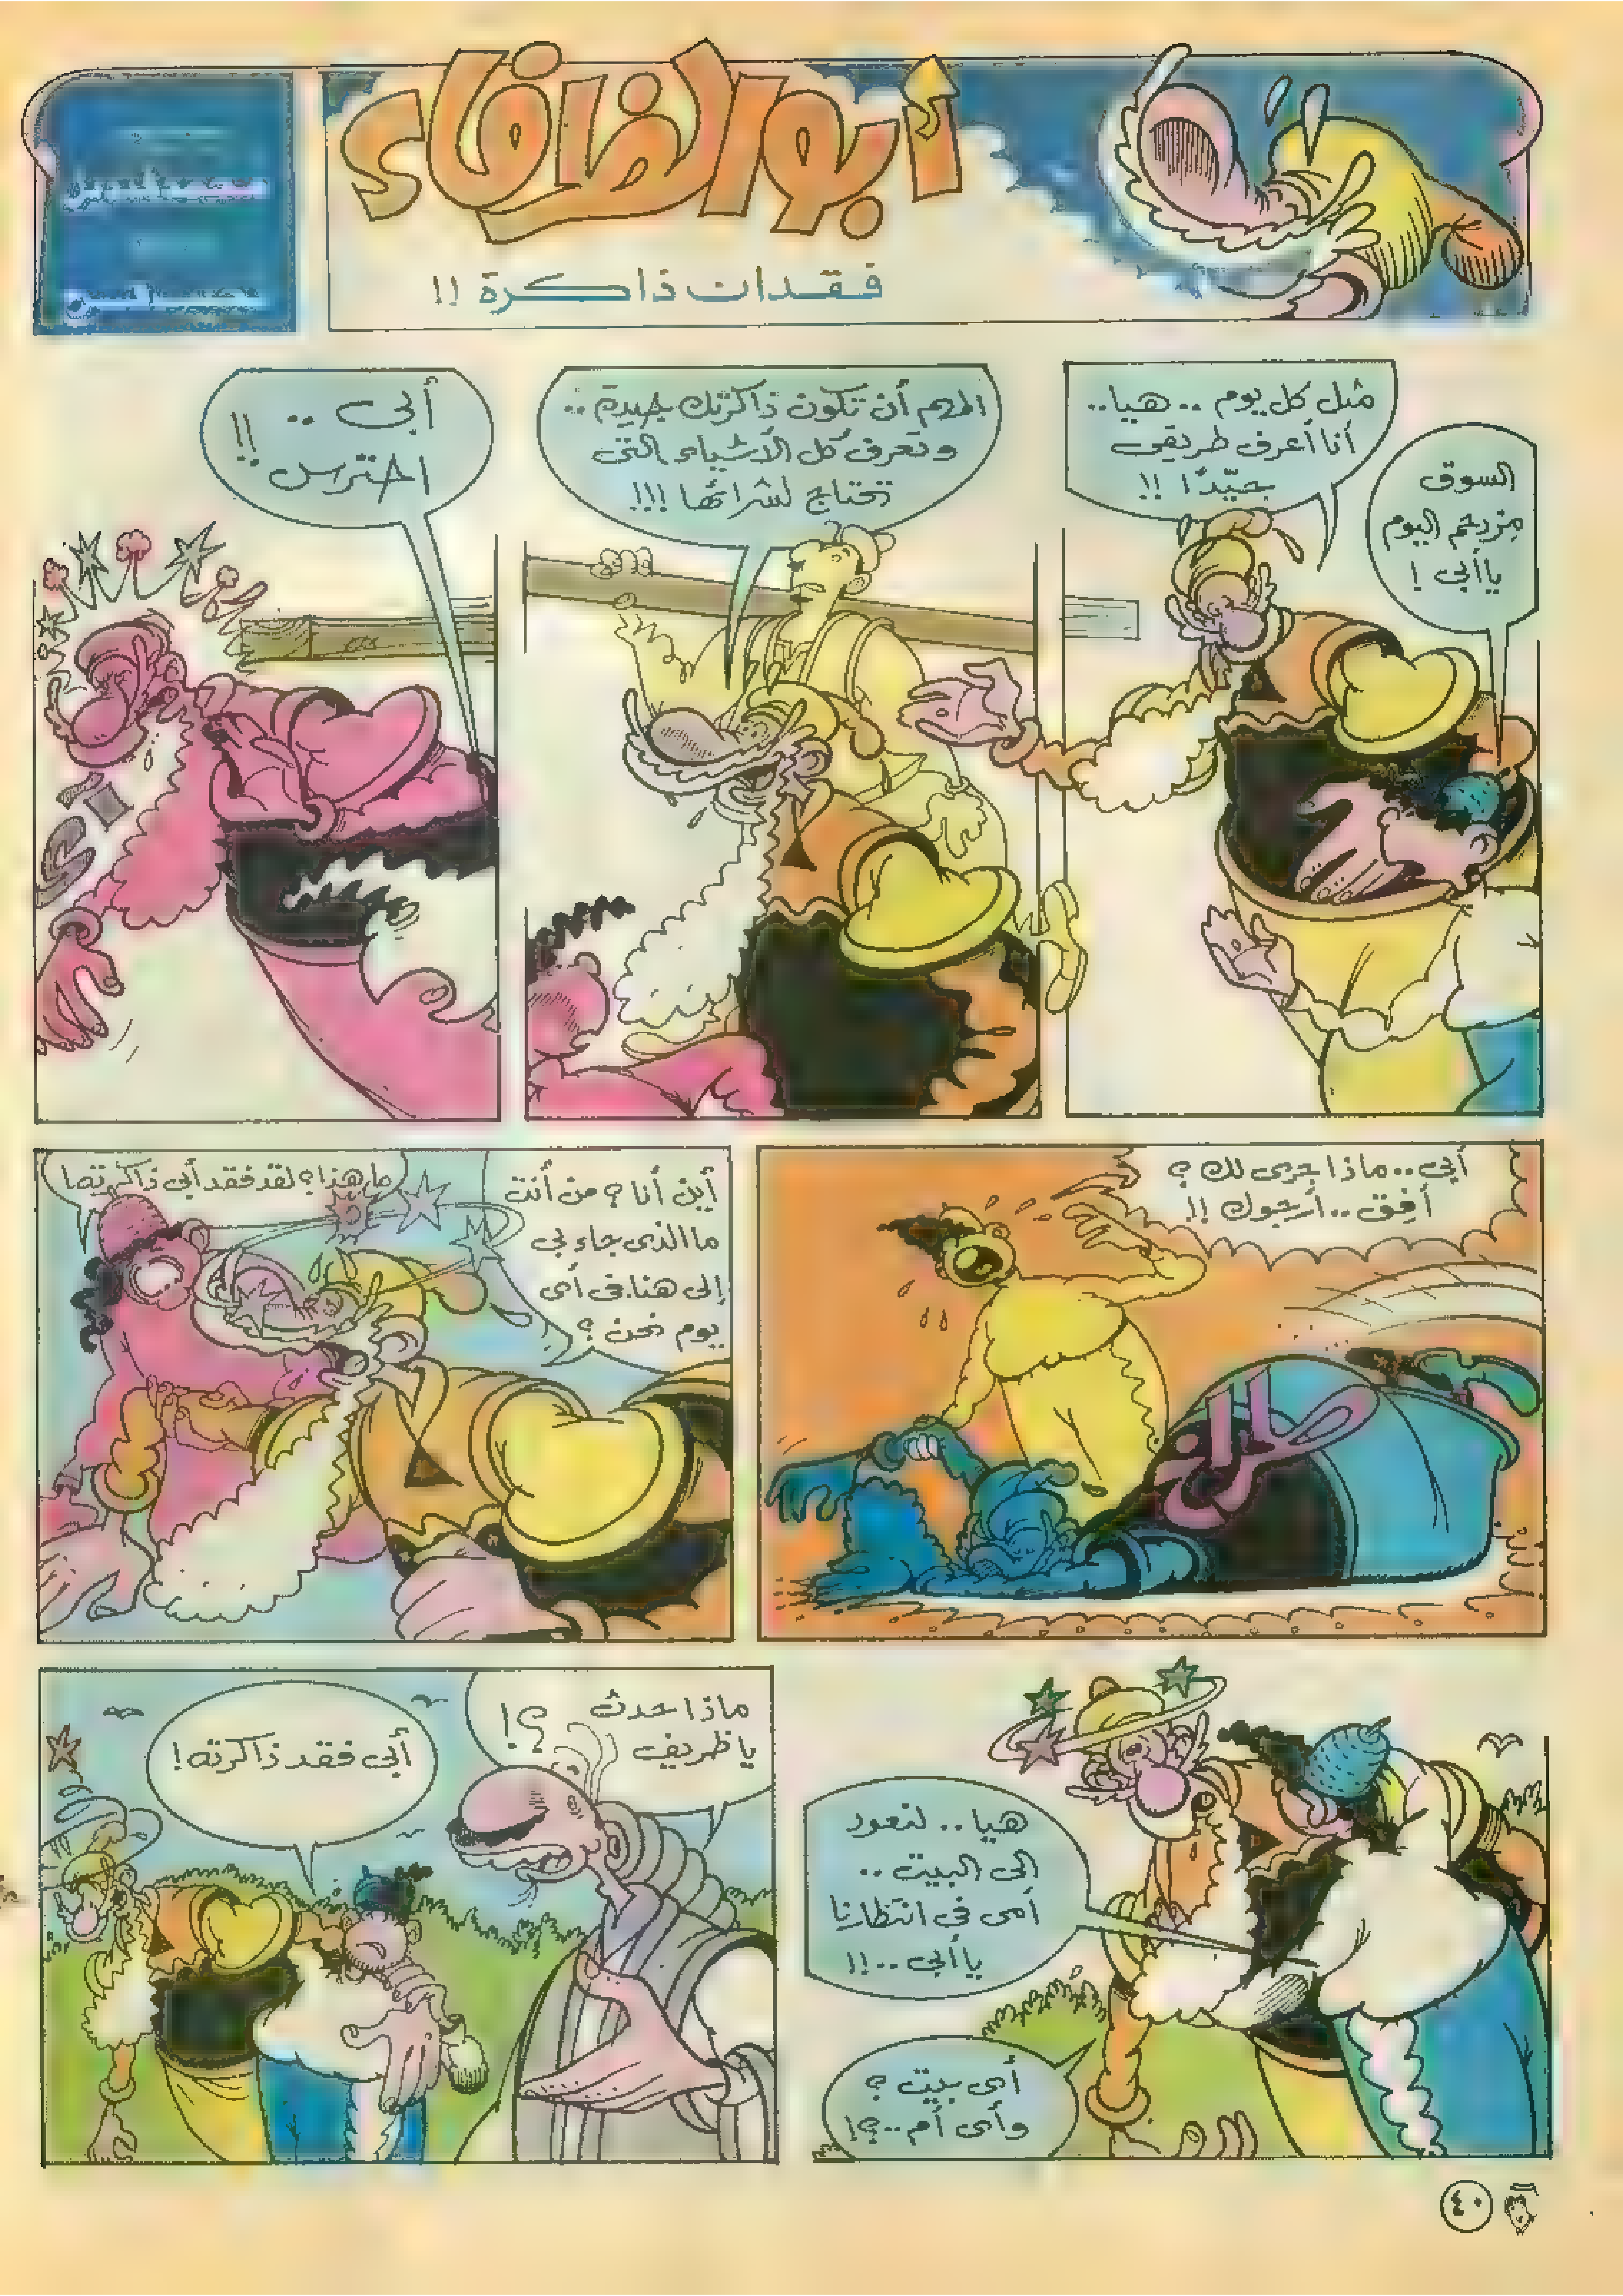 أبو الظرفاء
فقدان ذاكرة !!
السوق
مزدحم اليوم
يا أبى !
مثل كل يوم .. هيا..
أنا أعرف طريقى
جيّدًا !!
المهم أن تكون ذاكرتك جيدة ..
وتعرف كل الأشياء التى
تحتاج لشرائها !!!
أبى .. !!
احترس
أبى .. ماذا جرى لك ؟
أفِق .. أرجوك !!
أين أنا ؟ من أنت
ما الذى جاء بى
إلى هنا. فى أى
يوم نحن ؟
ما هذا ؟ لقد فقد أبى ذاكرته !
هيا .. لنعود
إلى البيت ..
أمى فى انتظارنا
يا أبى ..!!
أى بيت ؟
وأى أم ..؟!
ماذا حدث
يا ظريف ؟!
أبى فقد ذاكرته !
٤٠